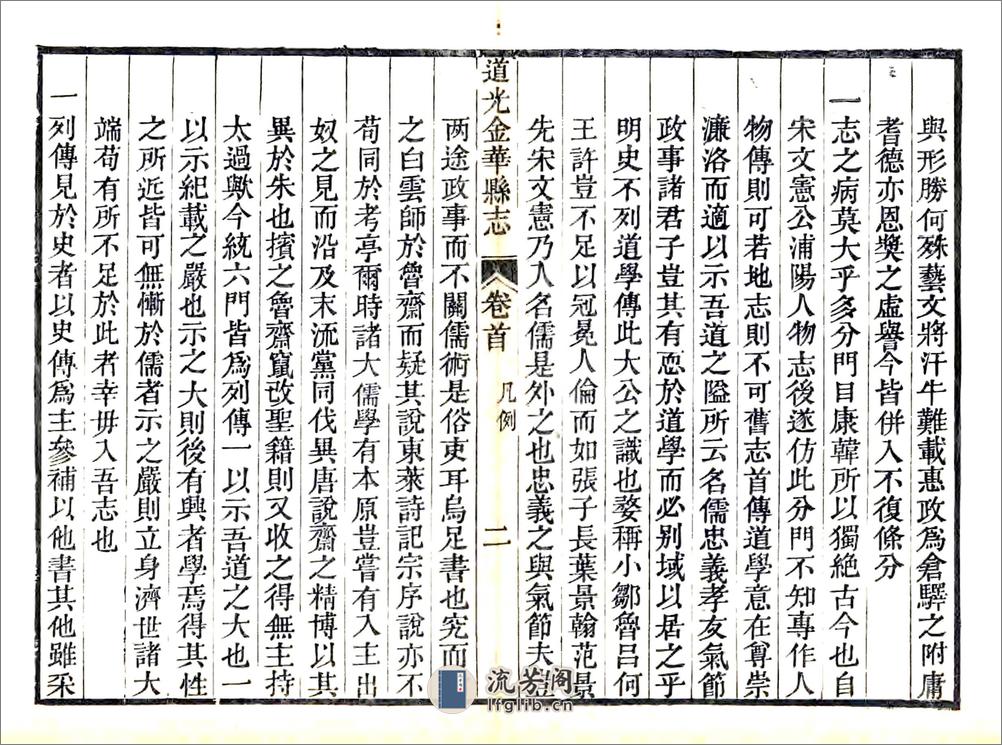 與形勝何殊藝文將汗牛難載惠政爲倉驛之附庸
耆德亦恩獎之虛譽今皆併入不復條分
一志之病莫大乎多分門目康韓所以獨絶古今也自
宋文憲公浦陽人物志後遂仿此分門不知專作人
物傳則可若地志則不可舊志首傳道學意在尊崇
濂洛而適以示吾道之隘所云名儒忠義孝友氣節
政事諸君子豈其有恧於道學而必別域以居之乎
明史不列道學傳此大公之識也婺稱小鄒魯呂何
王許豈不足以冠冕人倫而如張子長葉景翰范景
先宋文憲乃入名儒是外之也忠義之與氣節夫豈
道光金華縣志
卷首
凡例
二
两途政事而不關儒術是俗吏耳烏足書也究而論
之白雲師於魯齋而疑其說東萊詩記宗序說亦不
苟同於考亭爾時諸大儒學有本原豈嘗有入主出
奴之見而沿及末流黨同伐異唐說齋之精博以其
異於朱也擯之魯齋竄改聖籍則又收之得無主持
太過歟今統六門皆爲列傳一以示吾道之大也一
以示紀載之嚴也示之大則後有興者學焉得其性
之所近皆可無慚於儒者示之嚴則立身濟世諸大
端苟有所不足於此者幸毋入吾志也
一列傳見於史者以史傳爲主參補以他書其他雖采
流芳阁
lfglib.cn